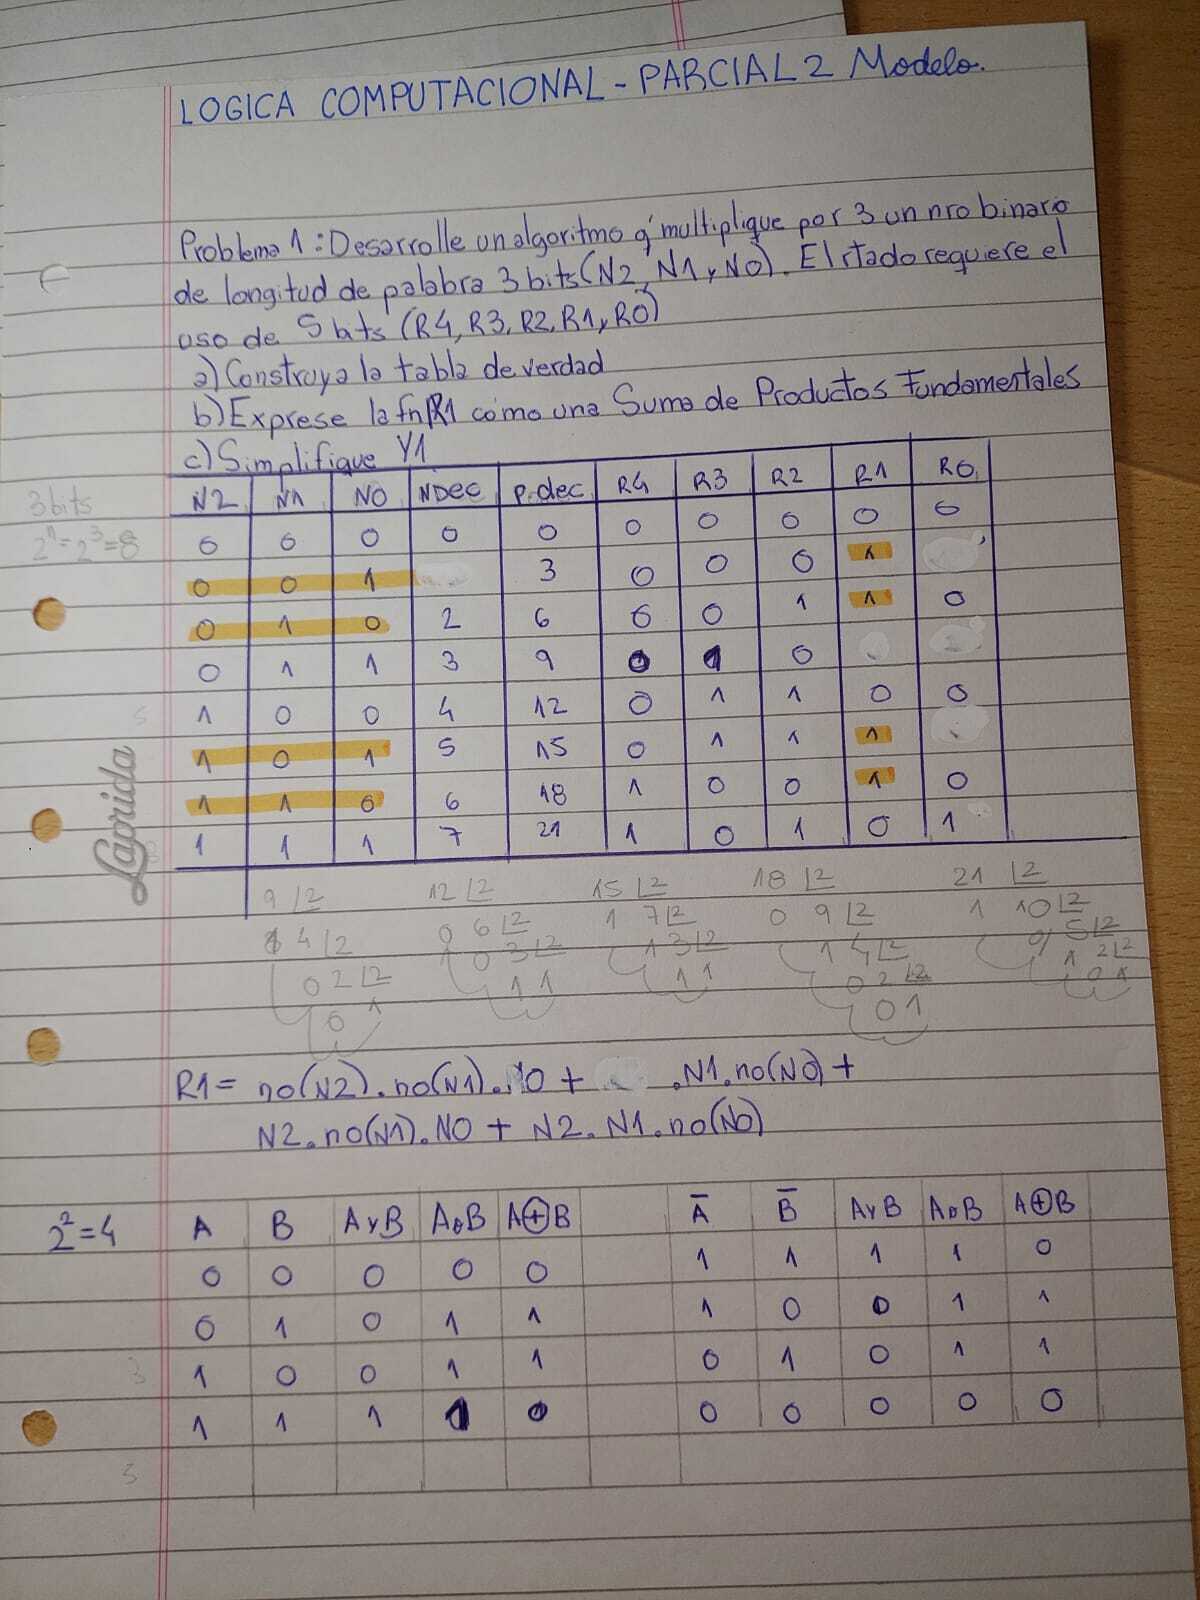 LOGICA COMPUTACIONAL - PARCIAL 2 Modelo.
Problema 1: Desarrolle un algoritmo q' multiplique por 3 un nro binario
de longitud de palabra 3 bits (N2, N1 y N0). El rtado requiere el
uso de 5 bits (R4, R3, R2, R1, y R0)
a) Construya la tabla de verdad
b) Exprese la fn R1 como una Suma de Productos Fundamentales
c) Simplifique Y1
3 bits
2^n = 2^3 = 8
N2 N1 N0 NDEC P.dec R4 R3 R2 R1 R0
0 0 0 0 0 0 0 0 0 0
0 0 1 3 0 0 0 1
0 1 0 2 6 0 0 1 1 0
0 1 1 3 9 0 1 0
1 0 0 4 12 0 1 1 0 0
1 0 1 5 15 0 1 1 1
1 1 0 6 18 1 0 0 1 0
1 1 1 7 21 1 0 1 0 1
Laprida
9 2 12 2 15 2 18 2 21 2
1 4 2 0 6 2 1 7 2 0 9 2 1 10 2
0 2 2 0 3 2 1 3 2 1 4 2 0 5 2
0 1 1 1 1 1 0 2 2 1 2 2
0 1 0 1
R1 = no(N2).no(N1).N0 + .N1.no(N0) +
N2.no(N1).N0 + N2.N1.no(N0)
2^2 = 4
A B A y B A o B A⊕B A̅ B̅ A y B A o B A⊕B
0 0 0 0 0 1 1 1 1 0
0 1 0 1 1 1 0 0 1 1
1 0 0 1 1 0 1 0 1 1
1 1 1 1 0 0 0 0 0 0